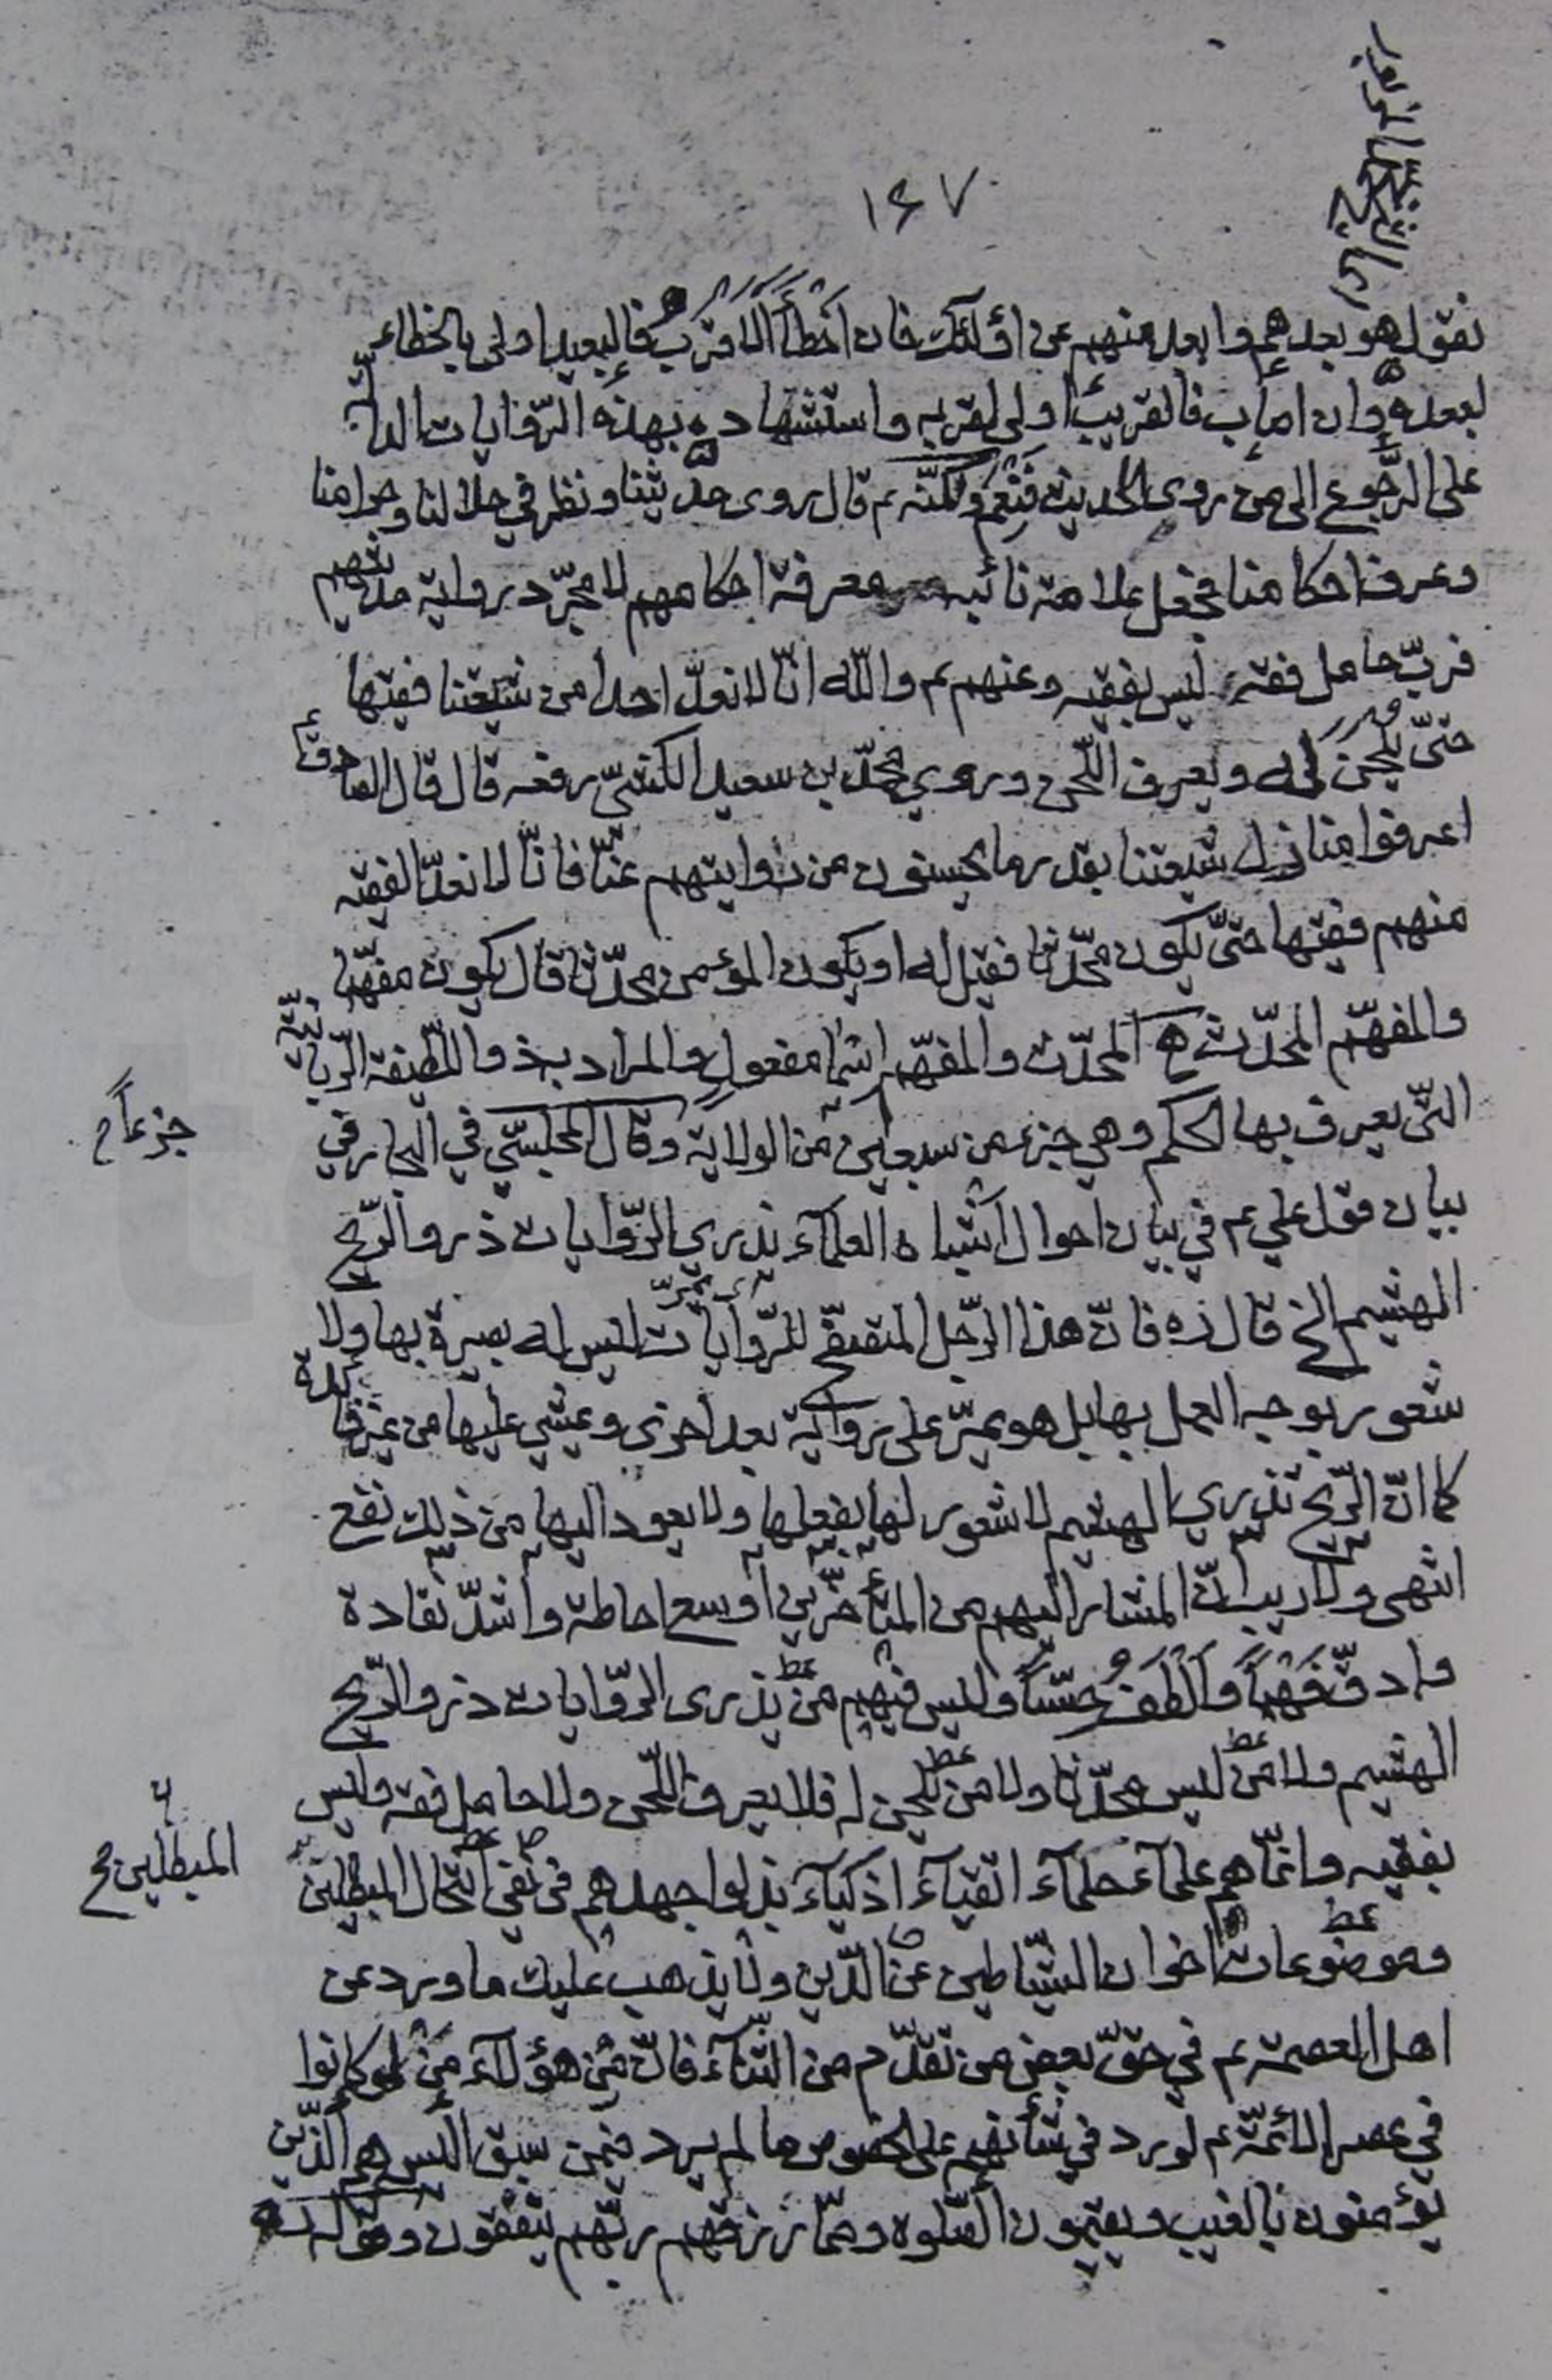 ١٤٧
نقول هو بعدهم وابعد منهم عن اؤلئك فان اخطأ الاقرب فالبعيد اولى بالخطاء
لبعده وان اصاب فالقريب اولى لقربه واستشهاده بهذه الرّوايات الدالّة
على الرّجوع الى من روى الحديث فنعم ولكنّه ع قال روى حديثنا ونظر في حلالنا وحرامنا
وعرف احكامنا فجعل علامة نائبهم معرفة احكامهم لا مجرّد رواية حديثهم
فربّ حامل فقه ليس بفقيه وعنهم ع والله انّا لا نعدّ احدا من شيعتنا فقيها
حتّى يلحن له ويعرف اللّحن وروي محمّد بن سعيد الكشّي رفعه قال قال الصادق ع
اعرفوا منازل شيعتنا بقدر ما يحسنون من رواياتهم عنّا فانّا لا نعدّ الفقيه
منهم فقيها حتّى يكون محدّثا فقيل له اويكون المؤمن محدّثا قال يكون مفهّما
والمفهّم المحدّث المحدّث والمفهّم اسما مفعول والمراد به ذو اللّطيفة الرّبانيّة
التّي يعرف بها الحكم وهي جزء من سبعين من الولاية وقال المجلسّي في البحار في
جزءا
بيان قول علي ع في بيان احوال اشباه العلمآء يذري الرّوايات ذرو الرّيح
الهشيم الخ قال ره فانّ هذا الرّجل المتصفّح للرّوايات ليس له بصيرة بها ولا
شعور بوجه العمل بها بل هو يمرّ على رواية بعد اخرى ويمشي عليها من غير فائدة
كما انّ الرّيح تذري الهشيم لا شعور لها بفعلها ولا يعود اليها من ذلك نفع
انتهى ولا ريب انّ المشار اليهم من المتأخّرين اوسع احاطة واشدّ نقادة
وادقّ فهماً والطف حسّاً وليس فيهم من يذرى الرّوايات ذرو الرّيح
الهشيم ولا من ليس محدّثا ولا من يلحن له فلا يعرف اللّحن ولا حامل فقه وليس
بفقيه وانّما هم علمآء حلمآء اتقيآء اذكيآء بذلوا جهدهم في نفي انتحال المبطلين
المبطلين
وموضوعات اخوان الشّياطين عن الدّين ولا يذهب عليك ما ورد عن
اهل العصمة ع في حقّ بعض من تقدّم من الثّنآء فانّ من هؤلآء من لو كانوا
في عصر الائمّة ع لورد في شأنهم على الخصوص ما لم يرد فيمن سبق اليس هم الّذين
يؤمنون بالغيب ويقيمون الصّلوة وممّا رزقهم ربّهم ينفقون وقوله